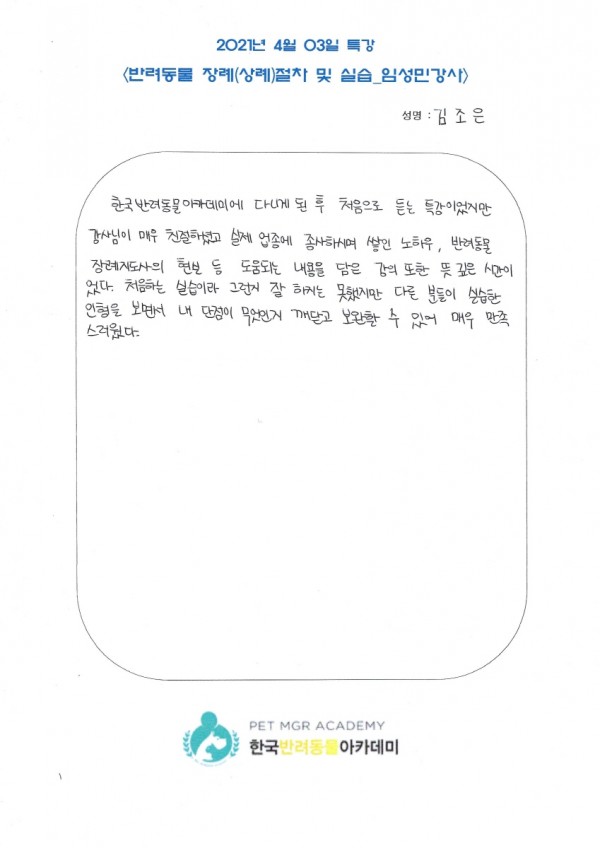 2021년 4월 03일 특강
<반려동물 장례(상례)절차 및 실습_임성민강사>
성명 : 김조은
한국반려동물아카데미에 다니게 된 후 처음으로 듣는 특강이었지만
강사님이 매우 친절하셨고 실제 업종에 종사하시며 쌓인 노하우, 반려동물
장례지도사의 현실 등 도움되는 내용을 담은 강의 또한 뜻 깊은 시간이
었다. 처음하는 실습이라 그런지 잘 하지는 못했지만 다른 분들이 실습한
인형을 보면서 내 단점이 무엇인지 깨닫고 보완할 수 있어 매우 만족
스러웠다.
PET MGR ACADEMY
한국반려동물아카데미